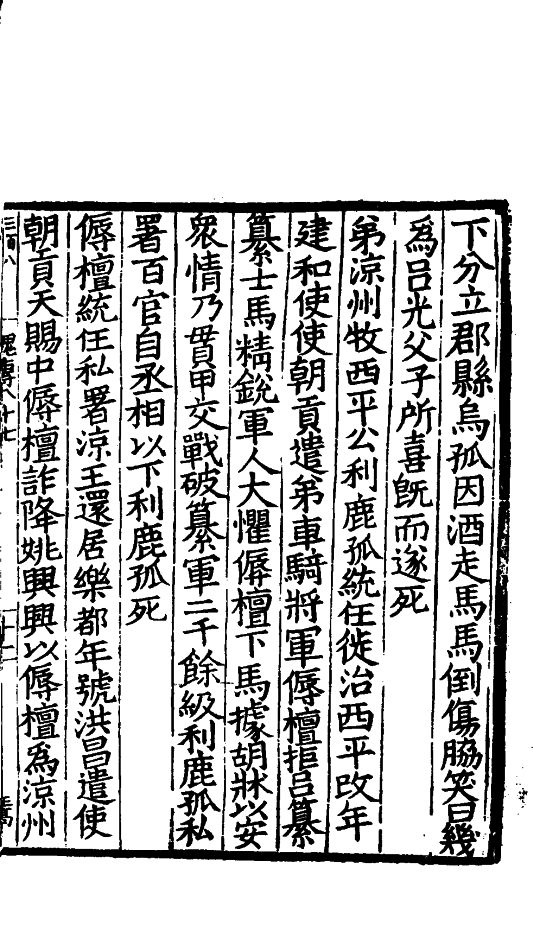 下分立郡縣烏孤因酒走馬馬倒傷脇笑曰幾
爲呂光父子所喜旣而遂死
弟涼州牧西平公利鹿孤統任徙治西平改年
建和使使朝貢遣弟車騎將軍傉檀拒呂纂
纂士馬精銳軍人大懼傉檀下馬據胡牀以安
衆情乃貫甲交戰破纂軍二千餘級利鹿孤私
署百官自丞相以下利鹿孤死
傉檀統任私署涼王還居樂都年號洪昌遣使
朝貢天賜中傉檀詐降姚興興以傉檀爲涼州
三百八
傳八十七
十二